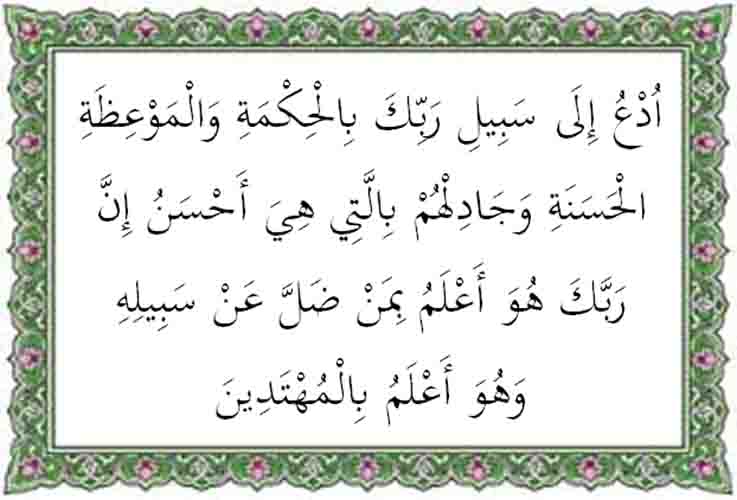 اُدْعُ إِلَى سَبِيلِ رَبِّكَ بِالْحِكْمَةِ وَالْمَوْعِظَةِ
الْحَسَنَةِ وَجَادِلْهُمْ بِالَّتِي هِيَ أَحْسَنُ إِنَّ
رَبَّكَ هُوَ أَعْلَمُ بِمَنْ ضَلَّ عَنْ سَبِيلِهِ
وَهُوَ أَعْلَمُ بِالْمُهْتَدِينَ